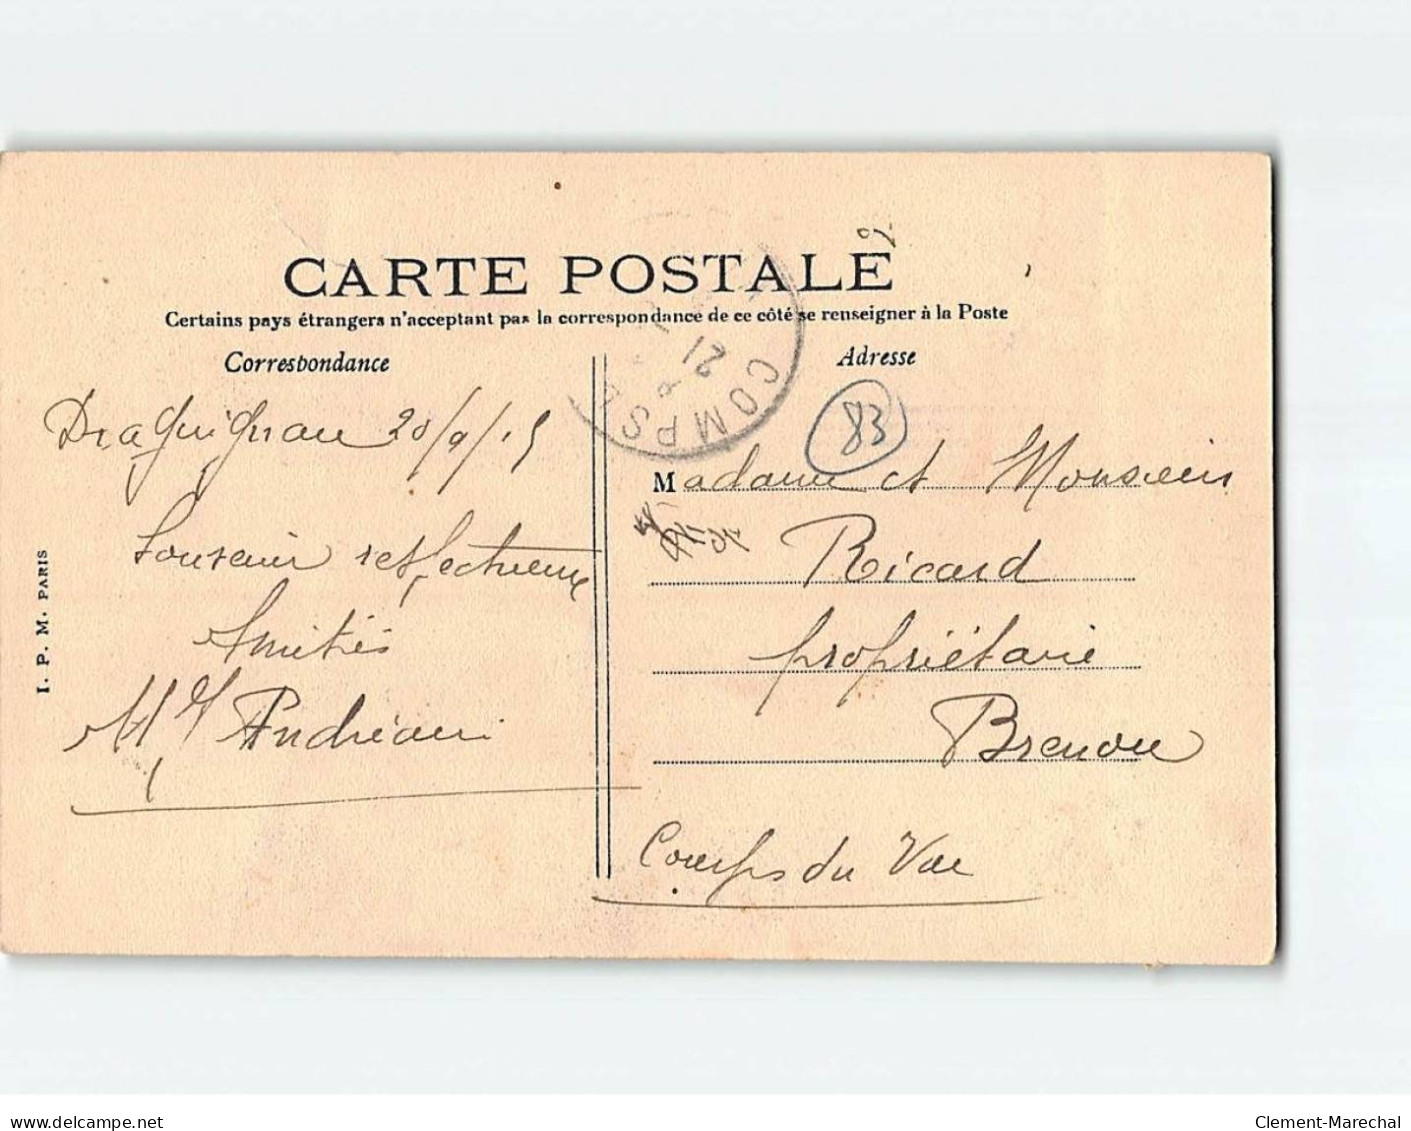 CARTE POSTALE
Certains pays étrangers n'acceptent pas la correspondance de ce côté se renseigner à la Poste
Correspondance
Adresse
COMPS
21
83
Draguignan 20/9/15
Souvenir respectueux
Amitiés
Andréani
I. P. M. PARIS
Madame et Monsieur
Ricard
propriétaire
Brenon
Comps du Var
www.delcampe.net
Clement-Marechal